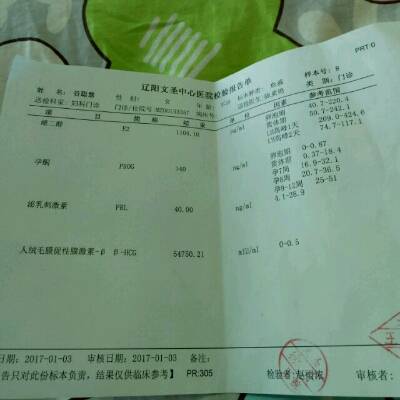 PRT-0
辽阳文圣中心医院检验报告单
样本号: 8
姓 名:
性 别: 女
年 龄:
类 别: 门诊
送检科室: 妇科门诊
门诊/住院号
参考范围
雌二醇 E2 1104.10 pg/ml
卵泡期 40.7-220.4
黄体期 59.7-242.1
LH高峰1天 209.0-424.6
LH高峰2天 74.7-117.1
孕酮 PROG >40 ng/ml
卵泡期 0-0.87
黄体期 0.37-18.4
孕7周 16.9-32.1
孕8周 20.7-36.5
孕9-12周 25-51
泌乳刺激素 PRL 40.00 ng/ml 4.1-28.9
人绒毛膜促性腺激素-β β-HCG 54750.21 mIU/ml 0-0.5
日期: 2017-01-03 审核日期: 2017-01-03 备注:
告只对此份标本负责, 结果仅供临床参考】 PR:305
检验者:
审核者: